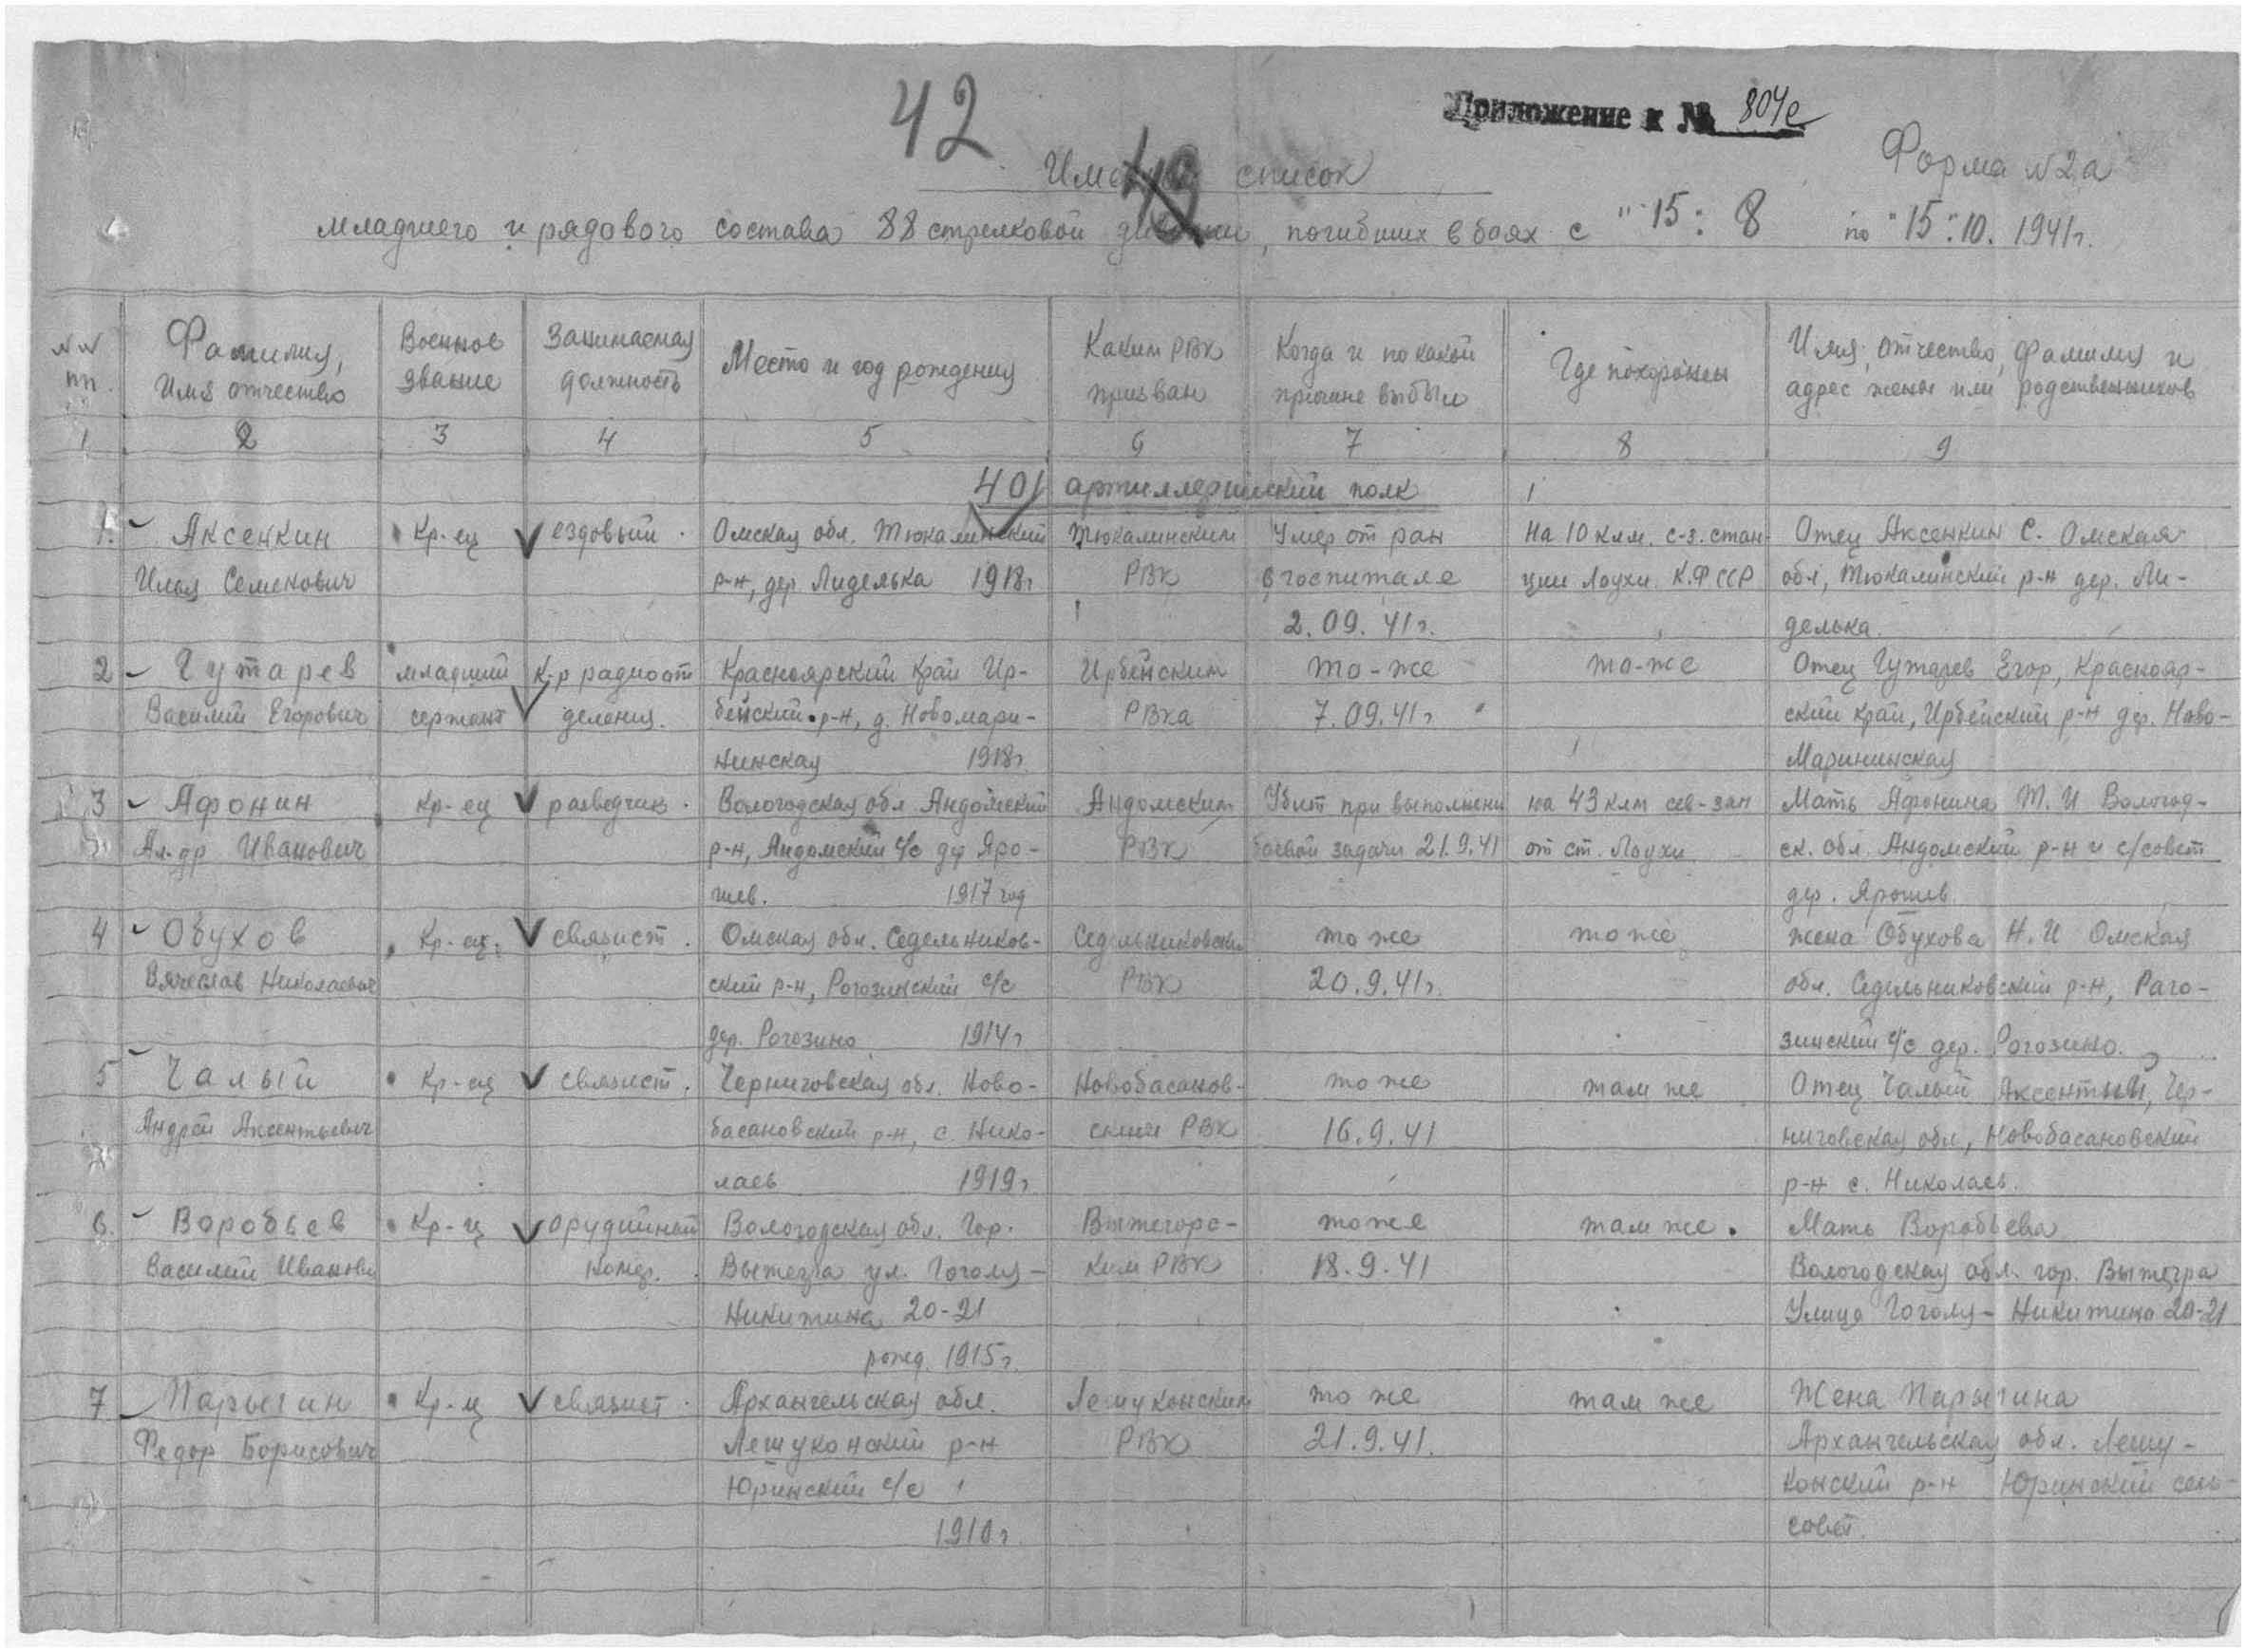 42
Приложение к № 804с
Форма №2а
Именной список
младшего и рядового состава 88 стрелковой дивизии, погибших в боях с "15" 8 по "15" 10. 1941г.
№№ пп.
Фамилия,
Имя отчество
Военное
звание
Занимаемая
должность
Место и год рождения
Каким РВК
призван
Когда и по какой
причине выбыл
Где похоронен
Имя, отчество, фамилия и
адрес жены или родственников
1 2 3 4 5 6 7 8 9
401 артиллерийский полк
1. Аксенкин Кр-ец ездовый. Омская обл. Тюкалинский Тюкалинским Умер от ран На 10 клм. с-з. стан- Отец Аксенкин С. Омская
Илья Семенович р-н, дер. Лиделька 1918г РВК в госпитале ции Лоухи К.Ф ССР обл, Тюкалинский р-н дер. Ли-
2.09.41г. делька.
2 Гутарев младший К-р радиоот Красноярский Край Ир- Ирбейским то-же то-же Отец Гутарев Егор, Краснояр-
Василий Егорович сержант деления. бейский р-н, д. Новомари- РВКа 7.09.41г ский край, Ирбейский р-н дер. Ново-
нинская 1918г. Марининская
3 Афонин Кр-ец разведчик. Вологодская обл Андомский Андомским Убит при выполнени на 43 клм сев-зап Мать Афонина М. И Вологод-
Ал-др Иванович р-н, Андомский с/с дер Яро- РВК боевой задачи 21.9.41 от ст. Лоухи ск. обл. Андомский р-н и с/совет
шев. 1917 год дер. Ярошев
4 Обухов Кр-ец. связист. Омская обл. Седельников- Седельниковским то же то же жена Обухова Н. И Омская
Вячеслав Николаевич ский р-н, Рогозинский с/с РВК 20.9.41г. обл. Седельниковский р-н, Раго-
дер. Рогозино 1914г зинский с/с дер. Рогозино.
5 Чалый Кр-ец связист. Черниговская обл. Ново- Новобасанов- то же там же Отец Чалый Аксентий, Чер-
Андрей Аксентьевич басановский р-н, с. Нико- ским РВК 16.9.41 ниговская обл, Новобасановский
лаев 1919г. р-н с. Николаев.
6. Воробьев Кр-ц орудийный Вологодская обл. Гор. Вытегорс- то же там же. Мать Воробьева
Василий Иванови номер. Вытегра ул. Гоголя - ким РВК 18.9.41 Вологодская обл. гор. Вытегра
Никитина 20-21 Улица Гоголя - Никитина 20-21
рожд. 1915г.
7 Парыгин Кр-ц связист. Архангельская обл. Лешуконским то же там же Жена Парыгина
Федор Борисович Лешуконский р-н РВК 21.9.41. Архангельская обл. Лешу-
Юринский с/с конский р-н Юринский сель-
1910г. совет.